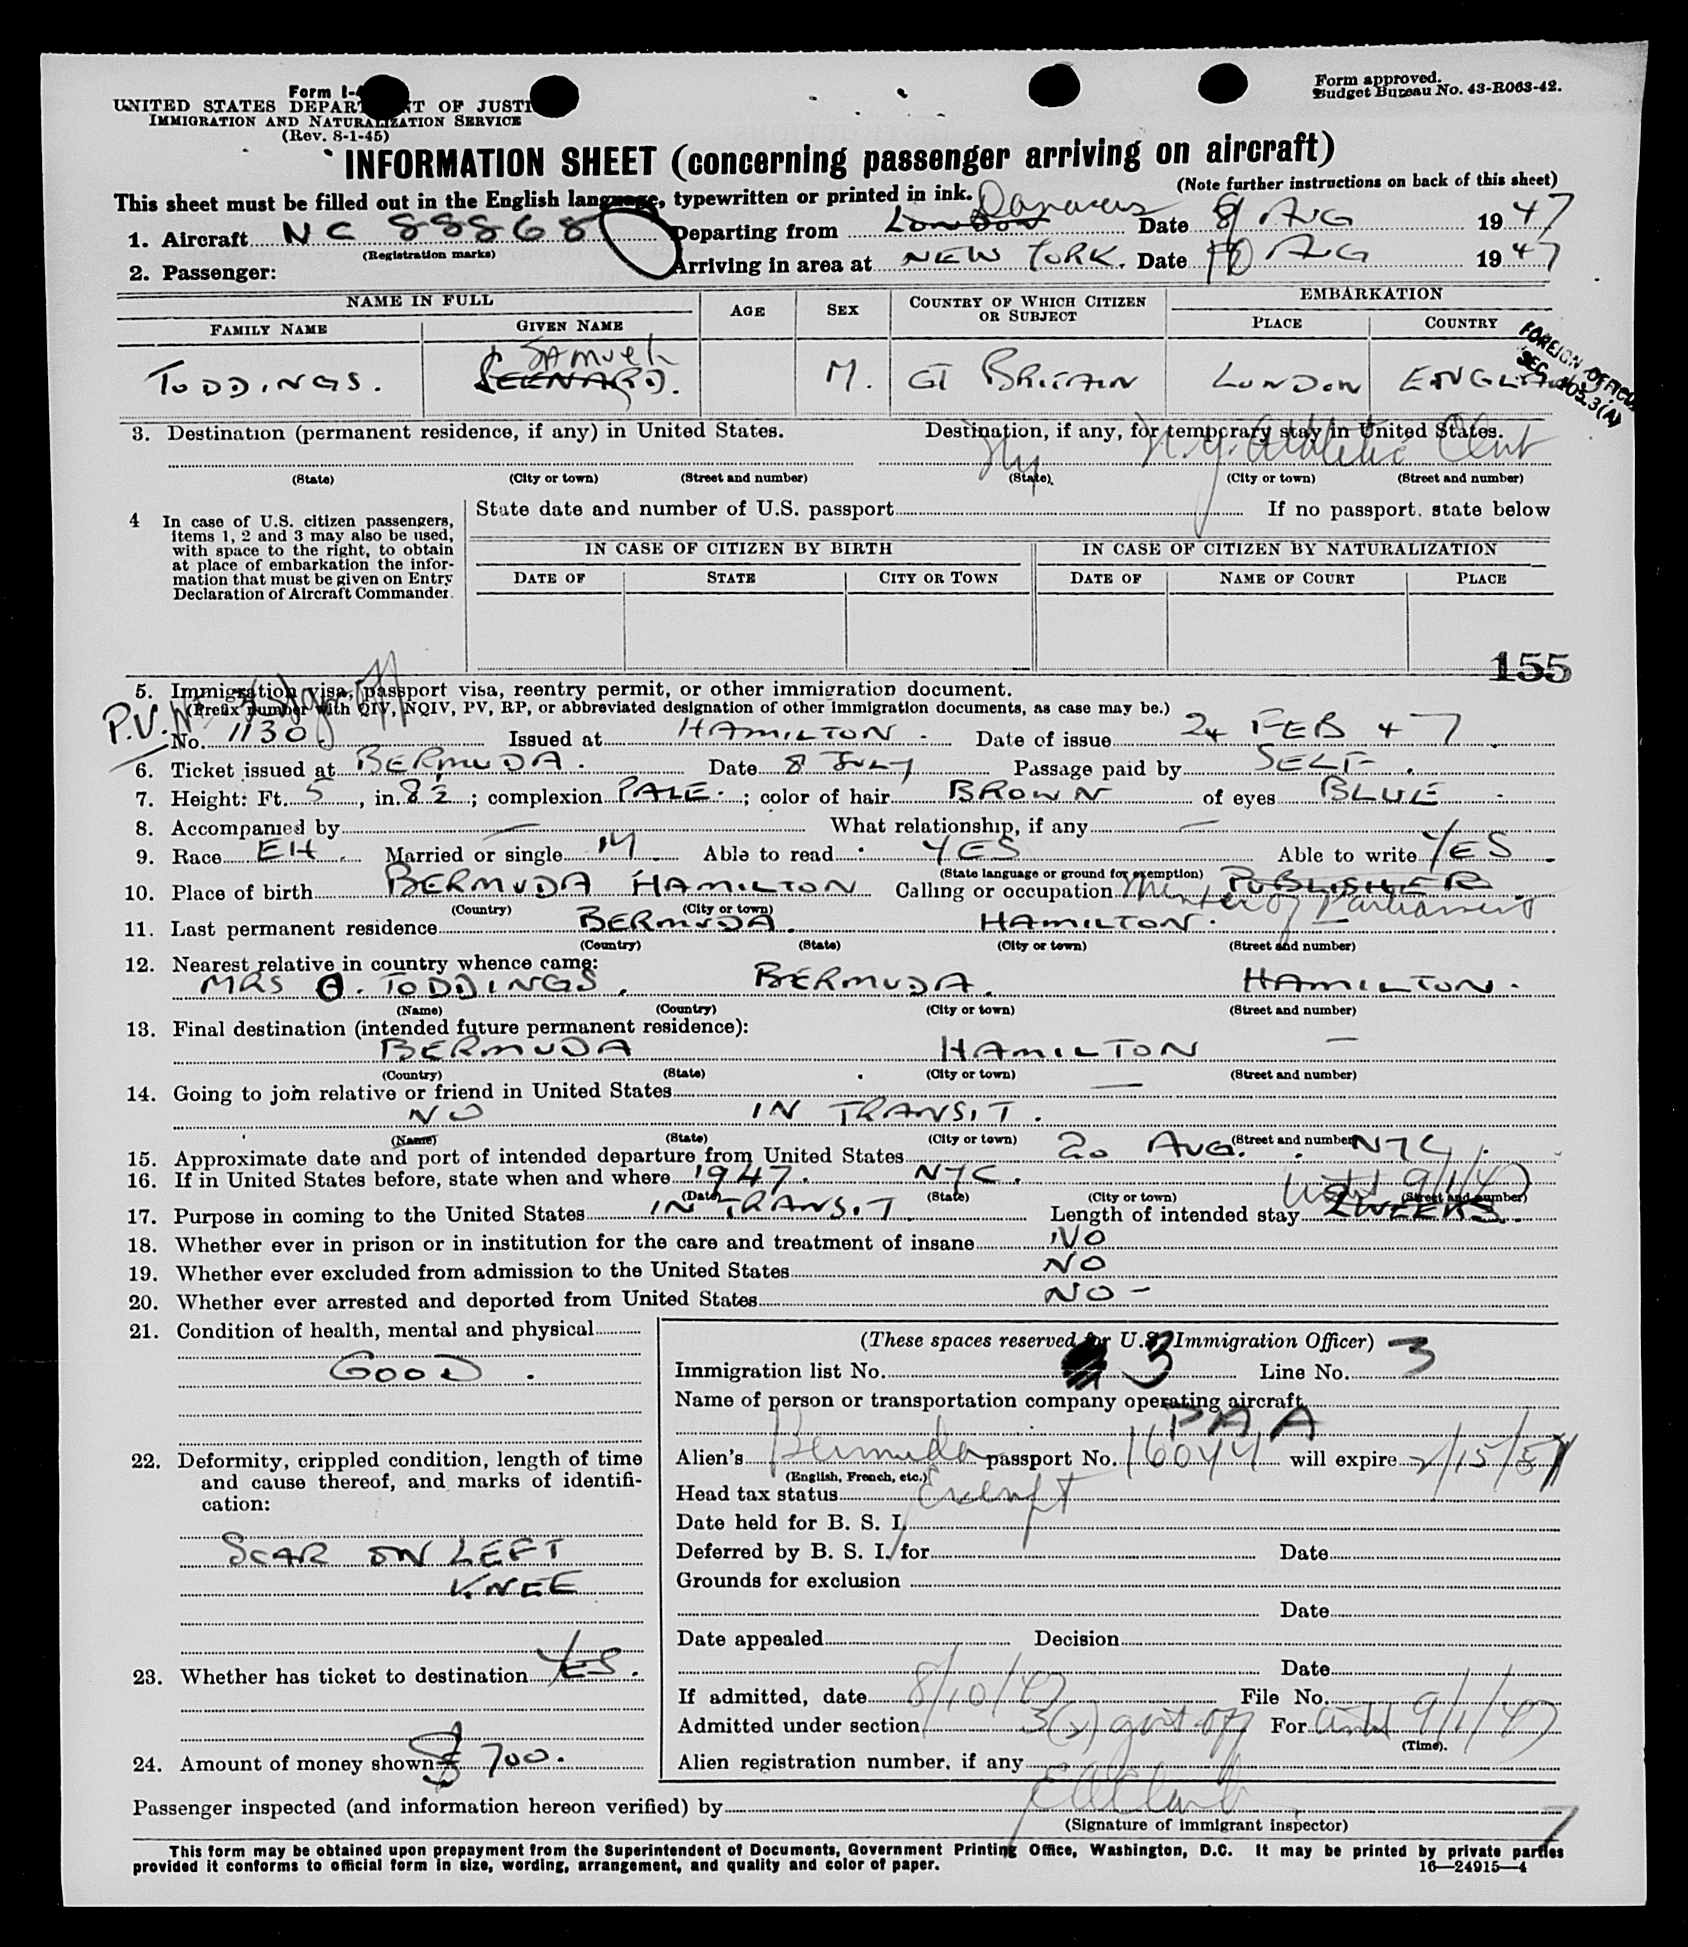 Form I-
UNITED STATES DEPARTMENT OF JUSTI
IMMIGRATION AND NATURALIZATION SERVICE
(Rev. 8-1-45)
Form approved.
Budget Bureau No. 43-R063-42.
INFORMATION SHEET (concerning passenger arriving on aircraft)
(Note further instructions on back of this sheet)
This sheet must be filled out in the English language, typewritten or printed in ink.
1. Aircraft NC 88868 Departing from London Date 9 AUG 1947
(Registration marks)
Arriving in area at NEW YORK. Date 10 AUG 1947
2. Passenger:
NAME IN FULL AGE SEX COUNTRY OF WHICH CITIZEN OR SUBJECT EMBARKATION
FAMILY NAME GIVEN NAME PLACE COUNTRY
FOREIGN OFFICIAL
SEC. 203.3(A)
Samuel
TODDINGS. SEENARD. M. GT BRITAIN LONDON ENGLAND
3. Destination (permanent residence, if any) in United States. Destination, if any, for temporary stay in United States.
Ny N.Y. Athletic Club
(State) (City or town) (Street and number) (State) (City or town) (Street and number)
4 In case of U.S. citizen passengers, items 1, 2 and 3 may also be used, with space to the right, to obtain at place of embarkation the information that must be given on Entry Declaration of Aircraft Commander.
State date and number of U.S. passport If no passport, state below
IN CASE OF CITIZEN BY BIRTH IN CASE OF CITIZEN BY NATURALIZATION
DATE OF STATE CITY OR TOWN DATE OF NAME OF COURT PLACE
155
5. Immigration visa, passport visa, reentry permit, or other immigration document.
(Prefix number with QIV, NQIV, PV, RP, or abbreviated designation of other immigration documents, as case may be.)
P.V. No. 1130 Issued at HAMILTON. Date of issue 24 FEB 47
6. Ticket issued at BERMUDA. Date 8 JULY Passage paid by SELF.
7. Height: Ft. 5, in. 8½; complexion PALE.; color of hair BROWN of eyes BLUE
8. Accompanied by — What relationship, if any —
9. Race EH. Married or single M Able to read YES Able to write YES
(State language or ground for exemption)
10. Place of birth BERMUDA HAMILTON Calling or occupation PUBLISHER
(Country) (City or town) Member of Parliament
11. Last permanent residence BERMUDA. HAMILTON. —
(Country) (State) (City or town) (Street and number)
12. Nearest relative in country whence came:
MRS O. TODDINGS. BERMUDA. HAMILTON.
(Name) (Country) (City or town) (Street and number)
13. Final destination (intended future permanent residence):
BERMUDA HAMILTON —
(Country) (State) (City or town) (Street and number)
14. Going to join relative or friend in United States —
NO IN TRANSIT.
(Name) (State) (City or town) (Street and number)
15. Approximate date and port of intended departure from United States 20 AUG. NYC.
16. If in United States before, state when and where 1947. NYC.
(Date) (State) (City or town) (Street and number)
until 9/1/47
17. Purpose in coming to the United States IN TRANSIT Length of intended stay 2 WEEKS.
18. Whether ever in prison or in institution for the care and treatment of insane NO
19. Whether ever excluded from admission to the United States NO
20. Whether ever arrested and deported from United States NO -
21. Condition of health, mental and physical
GOOD.
22. Deformity, crippled condition, length of time and cause thereof, and marks of identification:
SCAR ON LEFT
KNEE
23. Whether has ticket to destination YES.
24. Amount of money shown $ 700.
(These spaces reserved for U.S. Immigration Officer)
Immigration list No. 3 Line No. 3
Name of person or transportation company operating aircraft
PAA
Alien's Bermuda passport No. 16044 will expire 2/15/51
(English, French, etc.)
Head tax status Exempt
Date held for B. S. I.
Deferred by B. S. I. for Date
Grounds for exclusion
Date
Date appealed Decision
Date
If admitted, date 8/10/47 File No.
Admitted under section 3(1) govt off For until 9/1/47
(Time).
Alien registration number, if any
Passenger inspected (and information hereon verified) by
(Signature of immigrant inspector)
7
This form may be obtained upon prepayment from the Superintendent of Documents, Government Printing Office, Washington, D.C. It may be printed by private parties
provided it conforms to official form in size, wording, arrangement, and quality and color of paper.
16—24915—4